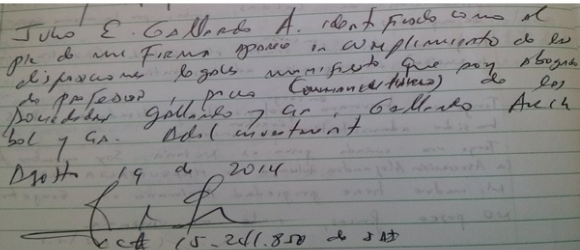 Julio E. Gallardo A. identificado como al
pie de mi firma aparece in cumplimiento de las
disposiciones legales manifiesto que soy abogado
de profesion, socio (comanditario) de las
sociedades Gallardo y Cia, Gallardo
bol y Cia. Adol investment
Agosto 19 de 2014
15.241.850 de